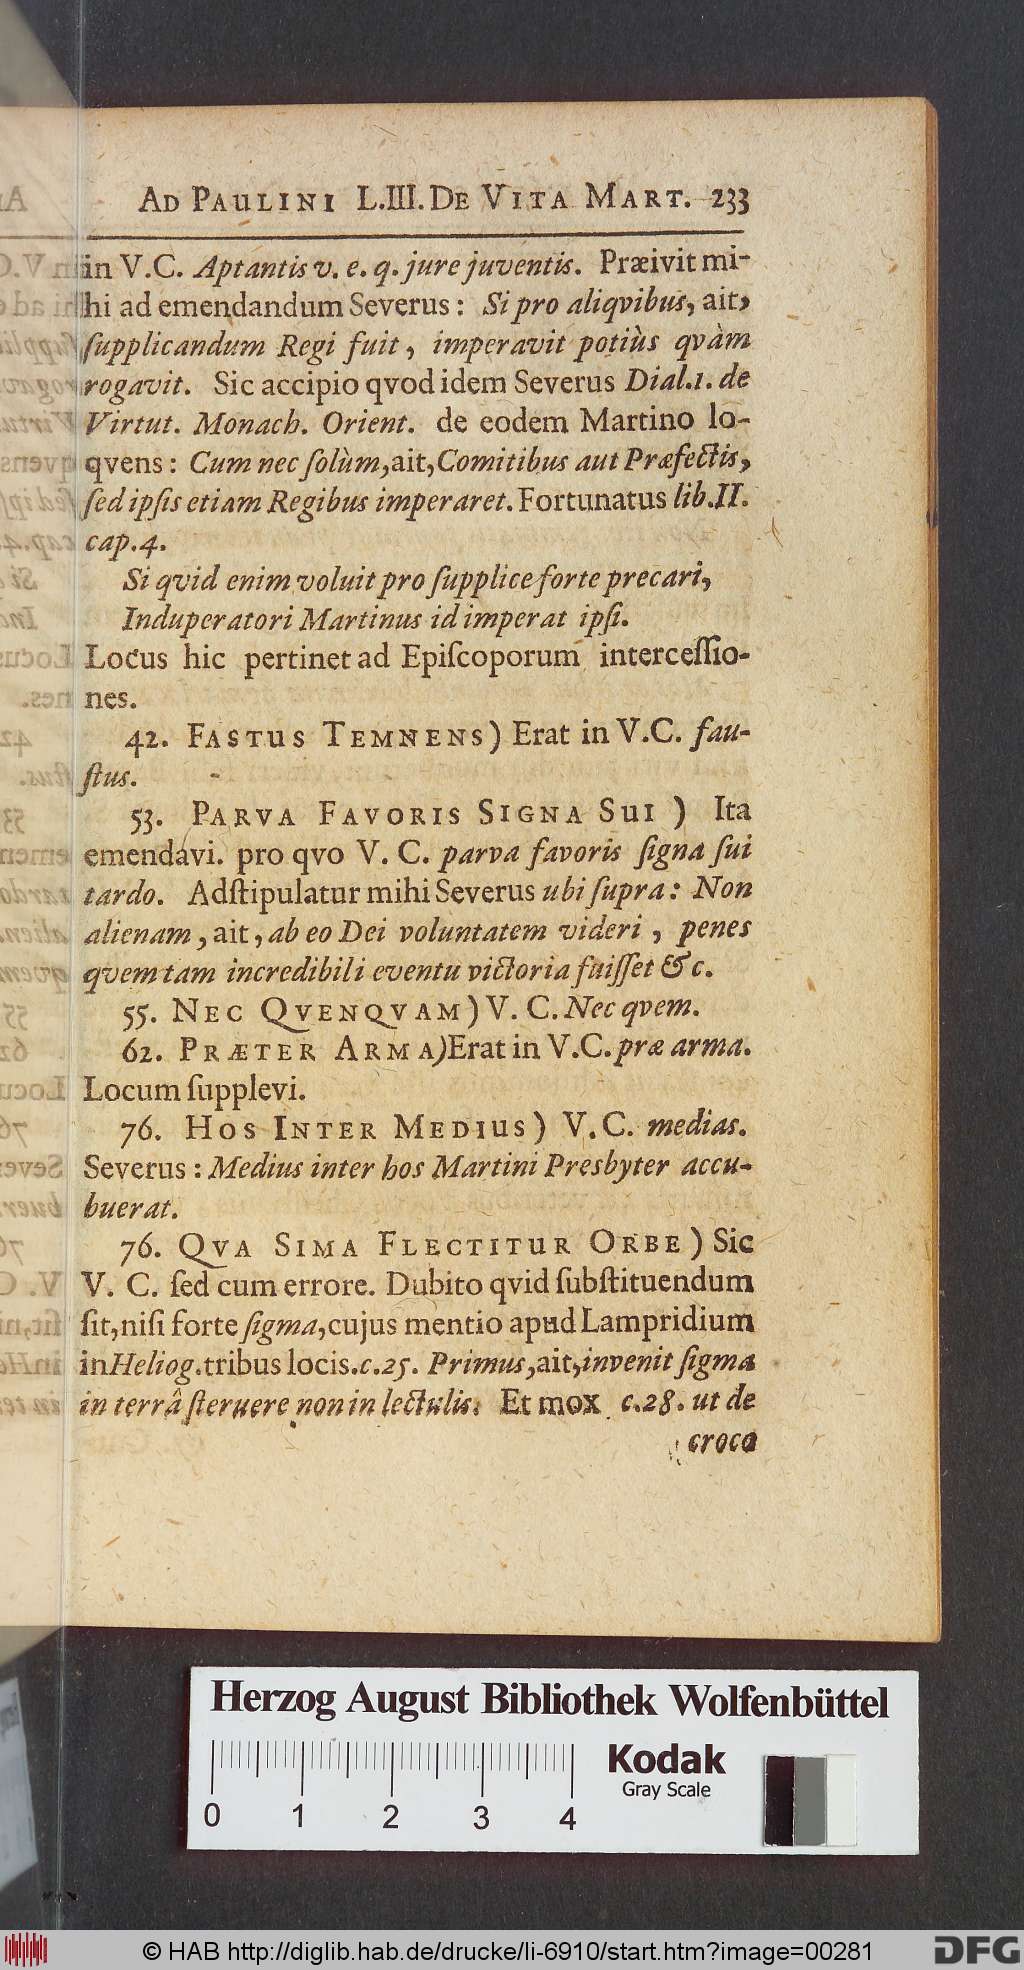 AD PAULINI L.III. DE VITA MART. 233
in V.C. Aptantis v. e. q. jure juventis. Præivit mi-
hi ad emendandum Severus: Si pro aliqvibus, ait,
ſupplicandum Regi fuit, imperavit potiùs qvàm
rogavit. Sic accipio qvod idem Severus Dial.1. de
Virtut. Monach. Orient. de eodem Martino lo-
qvens: Cum nec ſolùm, ait, Comitibus aut Præfectis,
ſed ipſis etiam Regibus imperaret. Fortunatus lib.II.
cap.4.
Si qvid enim voluit pro ſupplice forte precari,
Induperatori Martinus id imperat ipſi.
Locus hic pertinet ad Epiſcoporum interceſſio-
nes.
42. FASTUS TEMNENS) Erat in V.C. fau-
ſtus.
53. PARVA FAVORIS SIGNA SUI) Ita
emendavi. pro qvo V. C. parva favoris ſigna ſui
tardo. Adſtipulatur mihi Severus ubi ſupra: Non
alienam, ait, ab eo Dei voluntatem videri, penes
qvem tam incredibili eventu victoria fuiſſet &c.
55. NEC QVENQVAM) V. C. Nec qvem.
62. PRÆTER ARMA) Erat in V.C. præ arma.
Locum ſupplevi.
76. HOS INTER MEDIUS) V. C. medias.
Severus: Medius inter hos Martini Presbyter accu-
buerat.
76. QVA SIMA FLECTITUR ORBE) Sic
V. C. ſed cum errore. Dubito qvid ſubſtituendum
ſit, niſi forte ſigma, cujus mentio apud Lampridium
in Heliog. tribus locis. c.25. Primus, ait, invenit ſigma
in terrâ ſternere non in lectulis. Et mox c.28. ut de
croco
Herzog August Bibliothek Wolfenbüttel
Kodak
Gray Scale
0 1 2 3 4
© HAB http://diglib.hab.de/drucke/li-6910/start.htm?image=00281
DFG